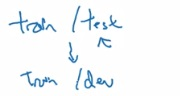 train / test
train / dev